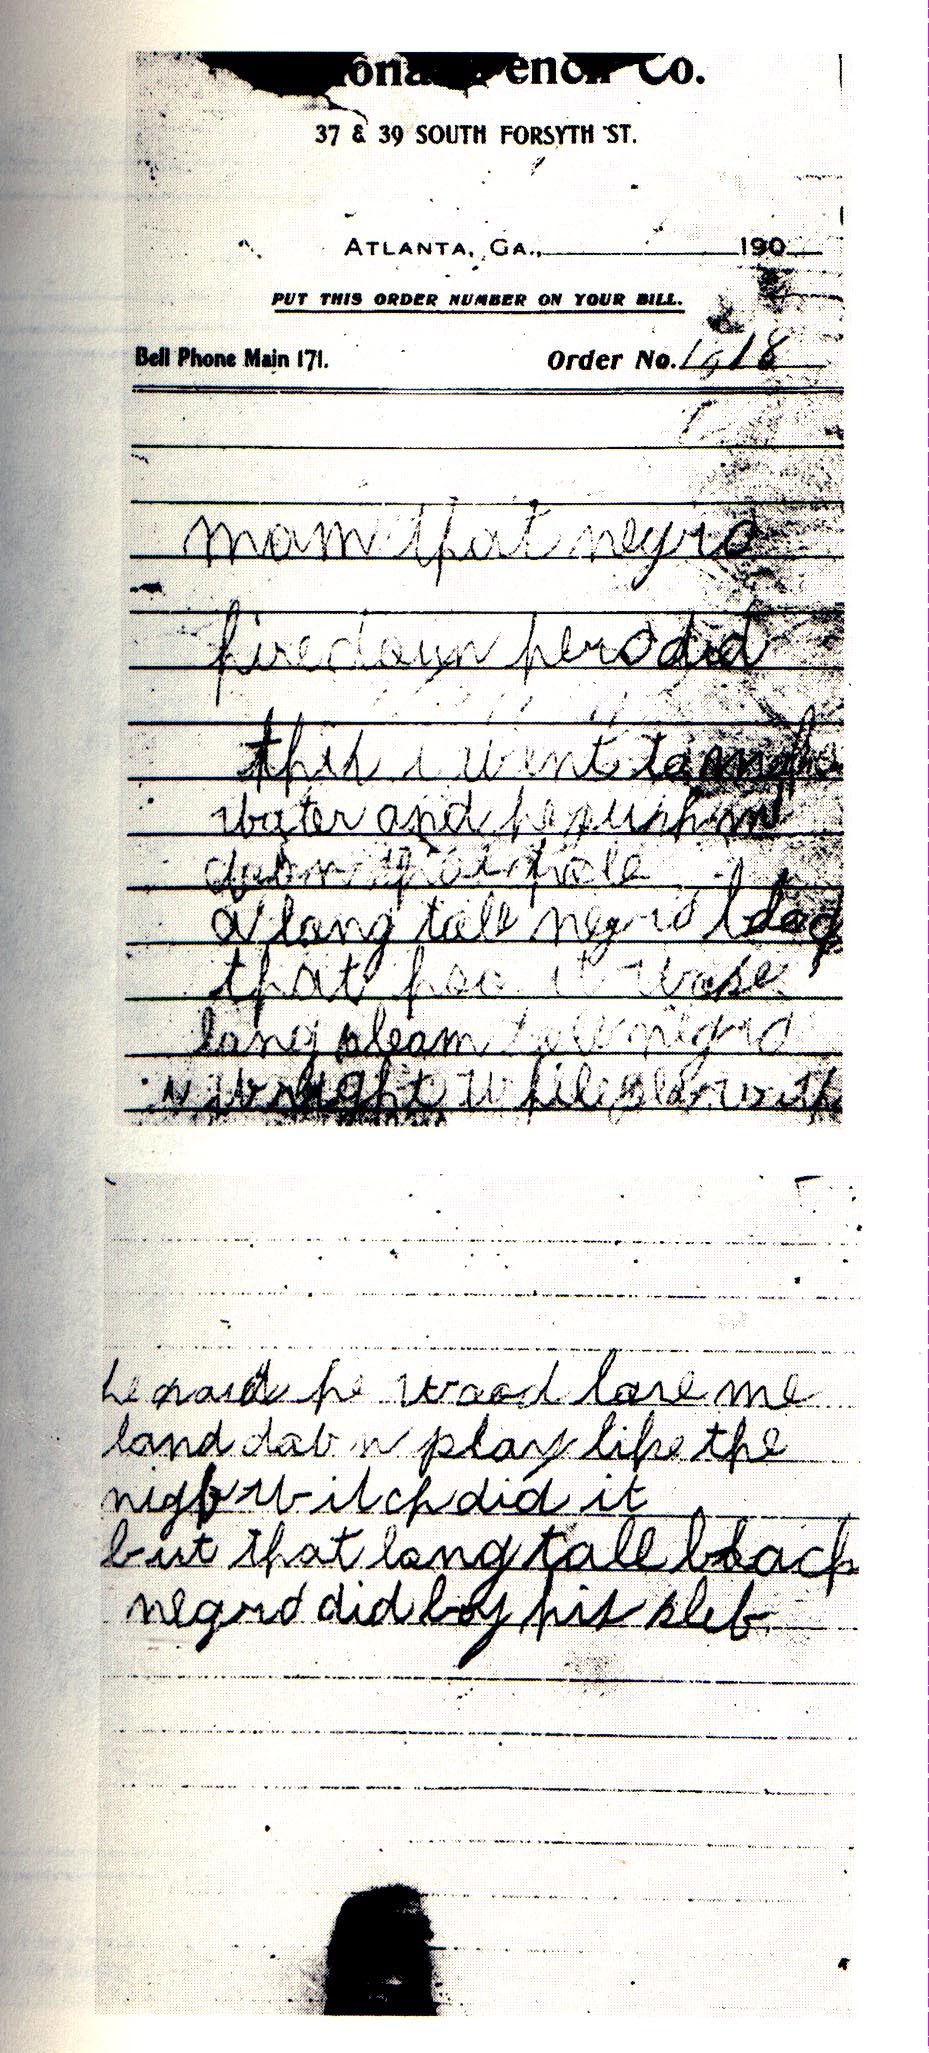 Co.
37 & 39 SOUTH FORSYTH ST.
ATLANTA, GA., 190
PUT THIS ORDER NUMBER ON YOUR BILL.
Bell Phone Main 171. Order No. 1818
mam that negro
hire down here did
this i went to make
water and he push me
down that hole
a long tall negro black
that hoo it wase
long sleam tall negro
i wright while play with
he said he wood love me
land dab n play like the
night witch did it
but that long tall black
negro did boy his sleb